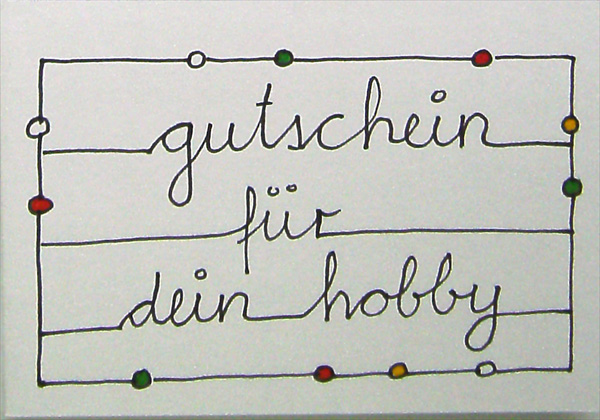 gutschein
für
dein hobby